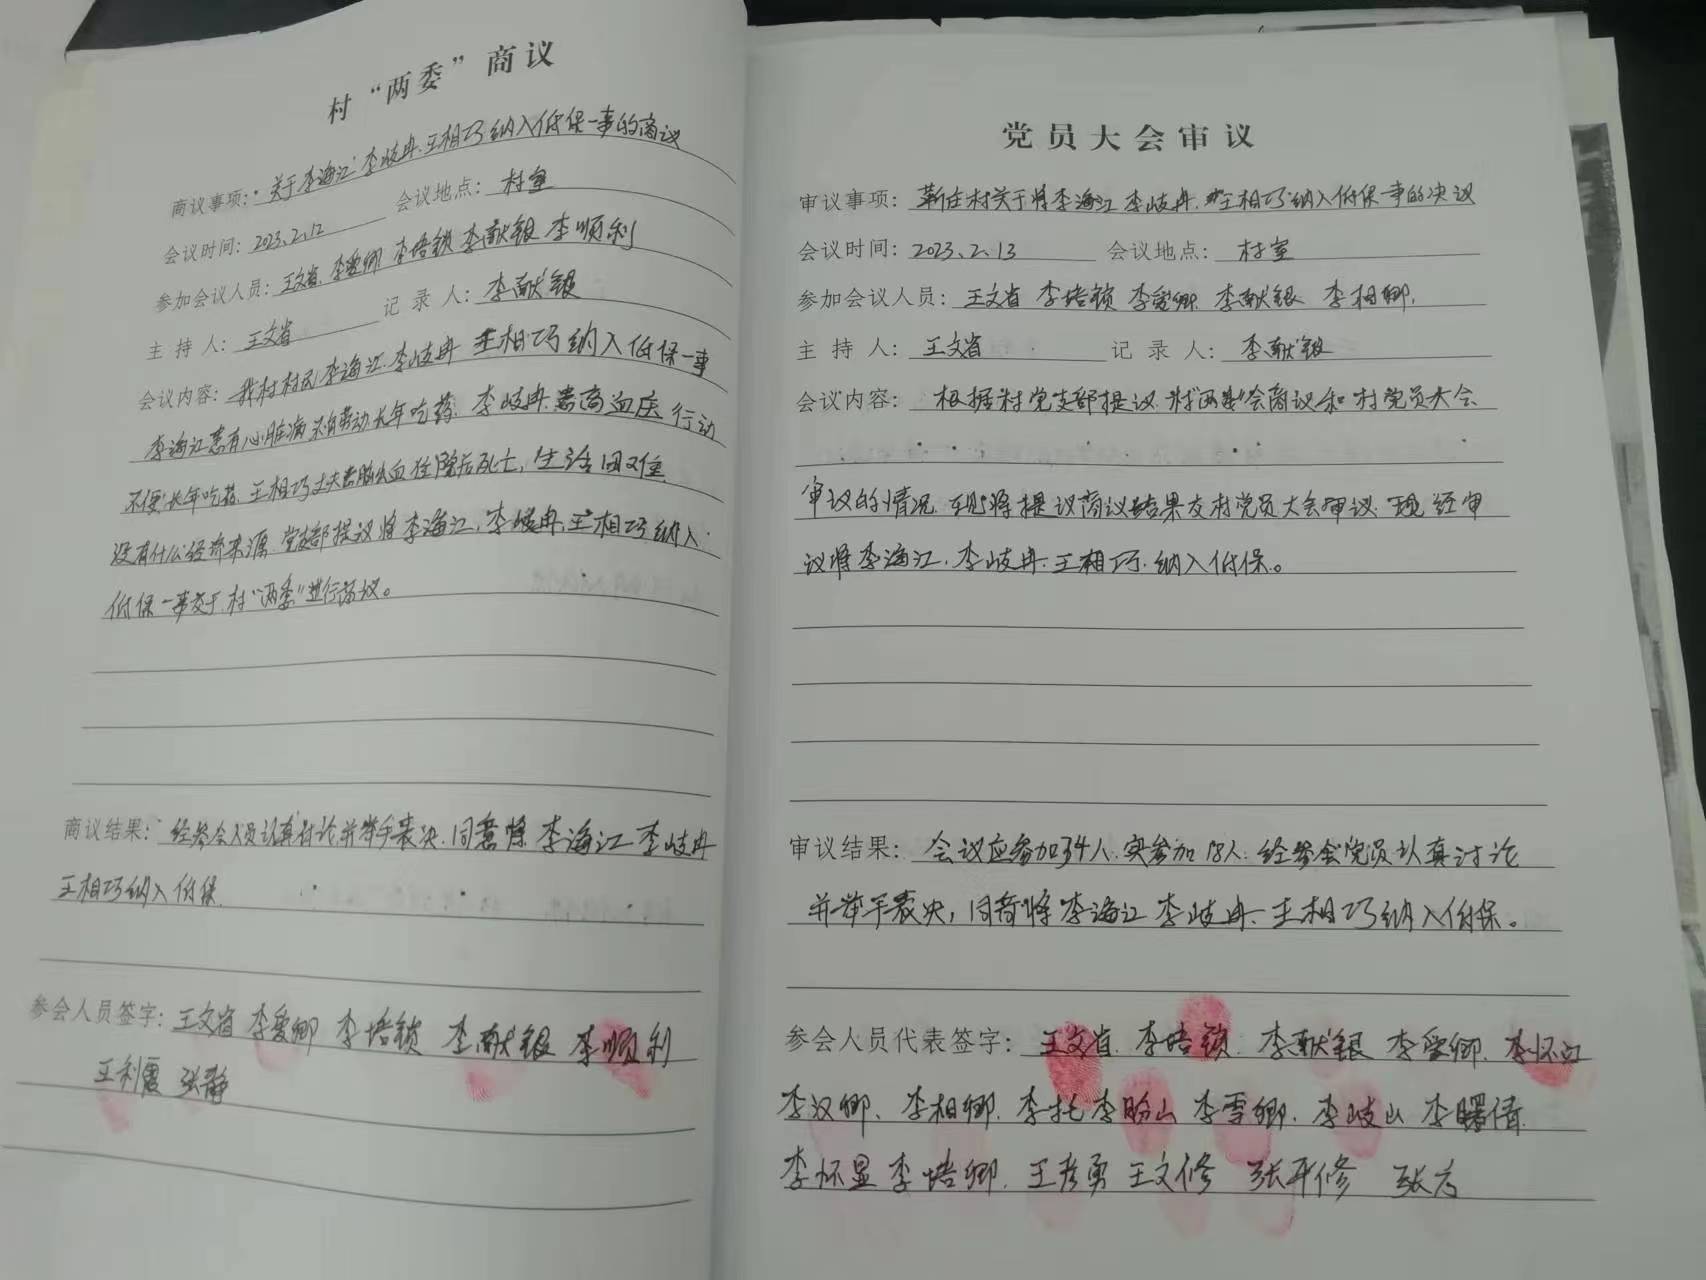 村“两委”商议
商议事项：关于李海江、李岐冉、王相巧纳入低保一事的商议
会议时间：2023.2.12 会议地点：村室
参加会议人员：王文省、李爱卿 李培锁 李献银 李顺利
主持人：王文省 记录人：李献银
会议内容：我村村民李海江、李岐冉 王相巧纳入低保一事
李海江患有心脏病不能劳动长年吃药、李岐冉患高血压行动
不便长年吃药、王相巧丈夫患脑出血住院后死亡，生活困难
没有什么经济来源、党支部提议将李海江、李岐冉、王相巧纳入
低保一事交于村“两委”进行商议。
商议结果：经参会人员认真讨论并举手表决、同意将李海江 李岐冉
王相巧纳入低保、
参会人员签字：王文省 李爱卿 李培锁 李献银 李顺利
王利霞 张静
党员大会审议
审议事项：靳庄村关于将李海江 李岐冉、王相巧纳入低保一事的决议
会议时间：2023.2.13 会议地点：村室
参加会议人员：王文省 李培锁 李爱卿、李献银 李相卿、
主持人：王文省 记录人：李献银
会议内容：根据村党支部提议、村“两委”会商议和村党员大会
审议的情况、现将提议商议结果交村党员大会审议、现经审
议将李海江、李岐冉、王相巧、纳入低保。
审议结果：会议应参加34人、实参加18人、经参会党员认真讨论
并举手表决，同意将李海江 李岐冉、王相巧纳入低保。
参会人员代表签字：王文省、李培锁、李献银 李爱卿、李怀江
李汉卿、李相卿、李托 李盼山 李雪卿、李岐山 李曙倩
李怀显 李培卿、王孝勇 王文修 张平修 张